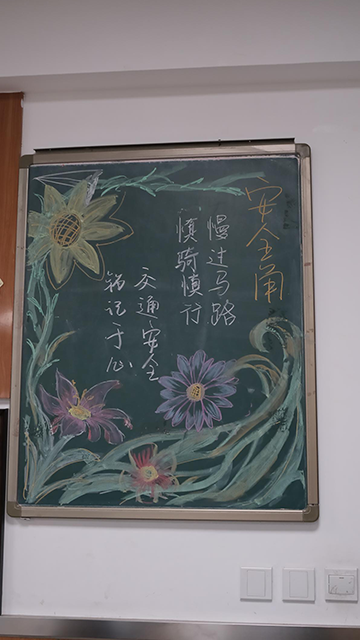 安全角
慢过马路
慎骑慎行
交通安全
铭记于心